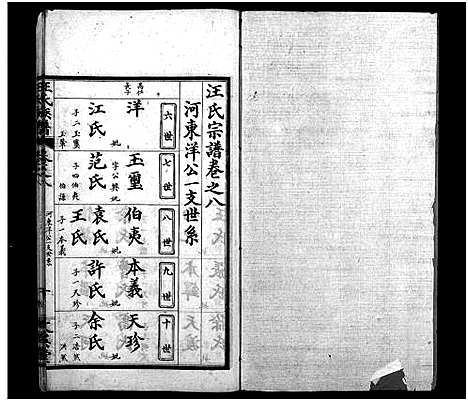 汪氏宗譜卷之八
河東洋公一支世系
六世
洋
江氏
妣
子二玉璽
七世
玉璽
字公興
范氏
妣
子四伯夷
八世
伯夷
袁氏
妣
王氏
子一本義
九世
本義
許氏
妣
子一天珍
十世
天珍
余氏
妣
河東洋公一支世系